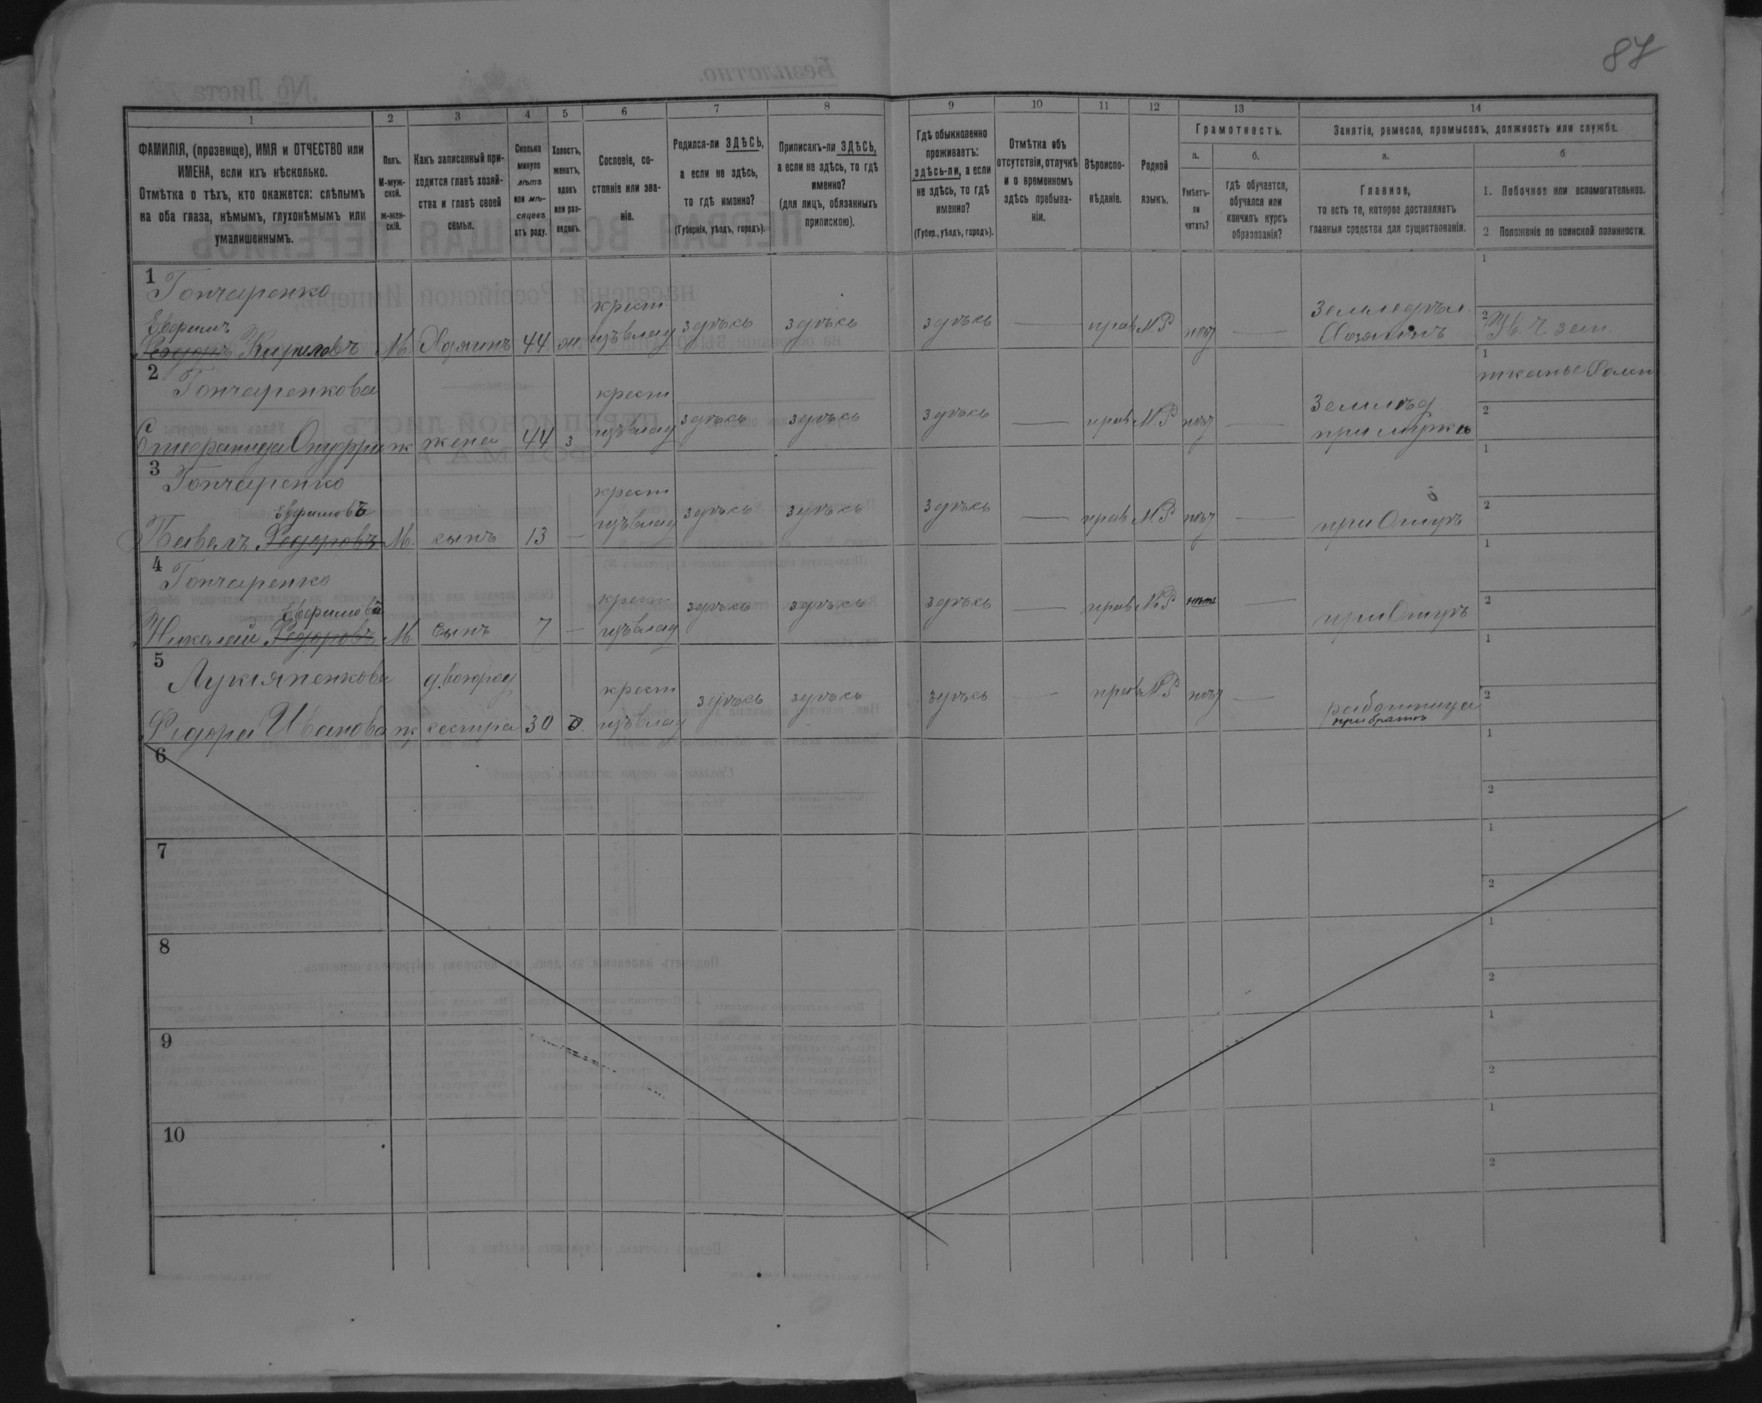 87
1 2 3 4 5 6 7 8 9 10 11 12 13 14
ФАМИЛІЯ, (прозвище), ИМЯ и ОТЧЕСТВО или
ИМЕНА, если ихъ нѣсколько.
Отмѣтка о тѣхъ, кто окажется: слѣпымъ
на оба глаза, нѣмымъ, глухонѣмымъ или
умалишеннымъ.
Полъ.
М-муж-
ской.
ж-жен-
скій.
Какъ записанный при-
ходится главѣ хозяй-
ства и главѣ своей
семьи.
Сколько
минуло
лѣтъ
или мѣ-
сяцевъ
отъ роду.
Холостъ,
женатъ,
вдовъ
или раз-
веденъ.
Сословіе, со-
стояніе или зва-
ніе.
Родился-ли ЗДѢСЬ,
а если не здѣсь,
то гдѣ именно?
(Губернія, уѣздъ, городъ).
Приписанъ-ли ЗДѢСЬ,
а если не здѣсь, то гдѣ
именно?
(для лицъ, обязанныхъ
припискою).
Гдѣ обыкновенно
проживаетъ:
здѣсь-ли, а если
не здѣсь, то гдѣ
именно?
(Губер., уѣздъ, городъ).
Отмѣтка объ
отсутствіи, отлучкѣ
и о временномъ
здѣсь пребыва-
ніи.
Вѣроиспо-
вѣданіе.
Родной
языкъ.
Грамотность.
а.
Умѣетъ-
ли
читать?
б.
Гдѣ обучается,
обучался или
кончилъ курсъ
образованія?
Занятіе, ремесло, промыселъ, должность или служба.
а.
Главное,
то есть то, которое доставляетъ
главныя средства для существованія.
б
1. Побочное или вспомогательное.
2 Положеніе по воинской повинности.
1 Гончаренко
Ефимъ
Федоръ Кириловъ М. Хозяинъ 44 ж крест изъ влад здѣсь здѣсь здѣсь прав МР нѣт
Хозяинъ
1
2
2 Гончаренкова
жена 44 з крест изъ влад здѣсь здѣсь здѣсь прав МР нѣт
при мужѣ
1
2
3 Гончаренко
Ефимовъ
Павелъ Федоровъ М. сынъ 13 крест изъ влад здѣсь здѣсь здѣсь прав МР нѣт
при Отцѣ
1
2
4 Гончаренко
Николай Федоровъ М. сынъ 7 крест изъ влад здѣсь здѣсь здѣсь прав МР нѣтъ
при Отцѣ
1
2
5 Лукяненкова
Федора Иванова ж сестра 30 крест изъ влад здѣсь здѣсь здѣсь прав МР нѣт
работница
при братѣ
1
2
6
1
2
7
1
2
8
1
2
9
1
2
10
1
2